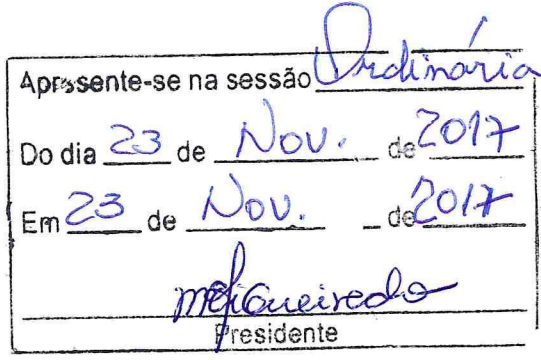 Apresente-se na sessão Ordinária
Do dia 23 de Nov. de 2017
Em 23 de Nov. de 2017
mfigueiredo
Presidente